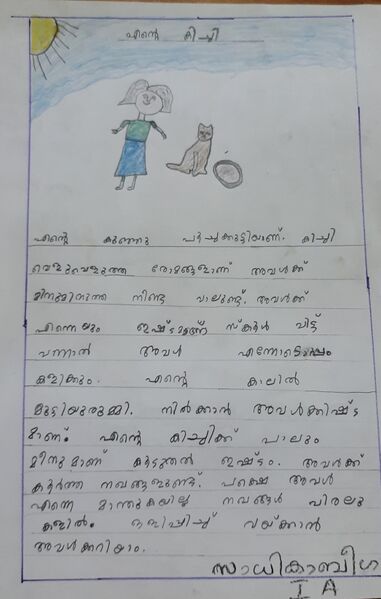 എന്റെ കിച്ചി
എന്റെ കുഞ്ഞു പൂച്ചക്കുട്ടിയാണ്. കിച്ചി
വെളുവെളുത്ത രോമങ്ങളാണ് അവൾക്ക്
മിനുമിനുത്ത നീണ്ട വാലുണ്ട്. അവൾക്ക്
എന്നെ ഇഷ്ടമാണ് സ്കൂൾ വിട്ട്
വന്നാൽ അവൾ എന്നോടൊപ്പം
കളിക്കും. എന്റെ കാലിൽ
മുട്ടിയുരുമ്മി. നിൽക്കാൻ അവൾക്കിഷ്ട
മാണ്. എന്റെ കിച്ചിക്ക് പാലും
മീനുമാണ് കൂടുതൽ ഇഷ്ടം. അവൾക്ക്
കൂർത്ത നഖങ്ങളുണ്ട്. പക്ഷെ അവൾ
എന്നെ മാന്തുകയില്ല നഖങ്ങൾ വിരലു
കളിൽ. ഒളിപ്പിച്ച് വയ്ക്കാൻ
അവൾക്കറിയാം.
സാധികാബീഗ
I A